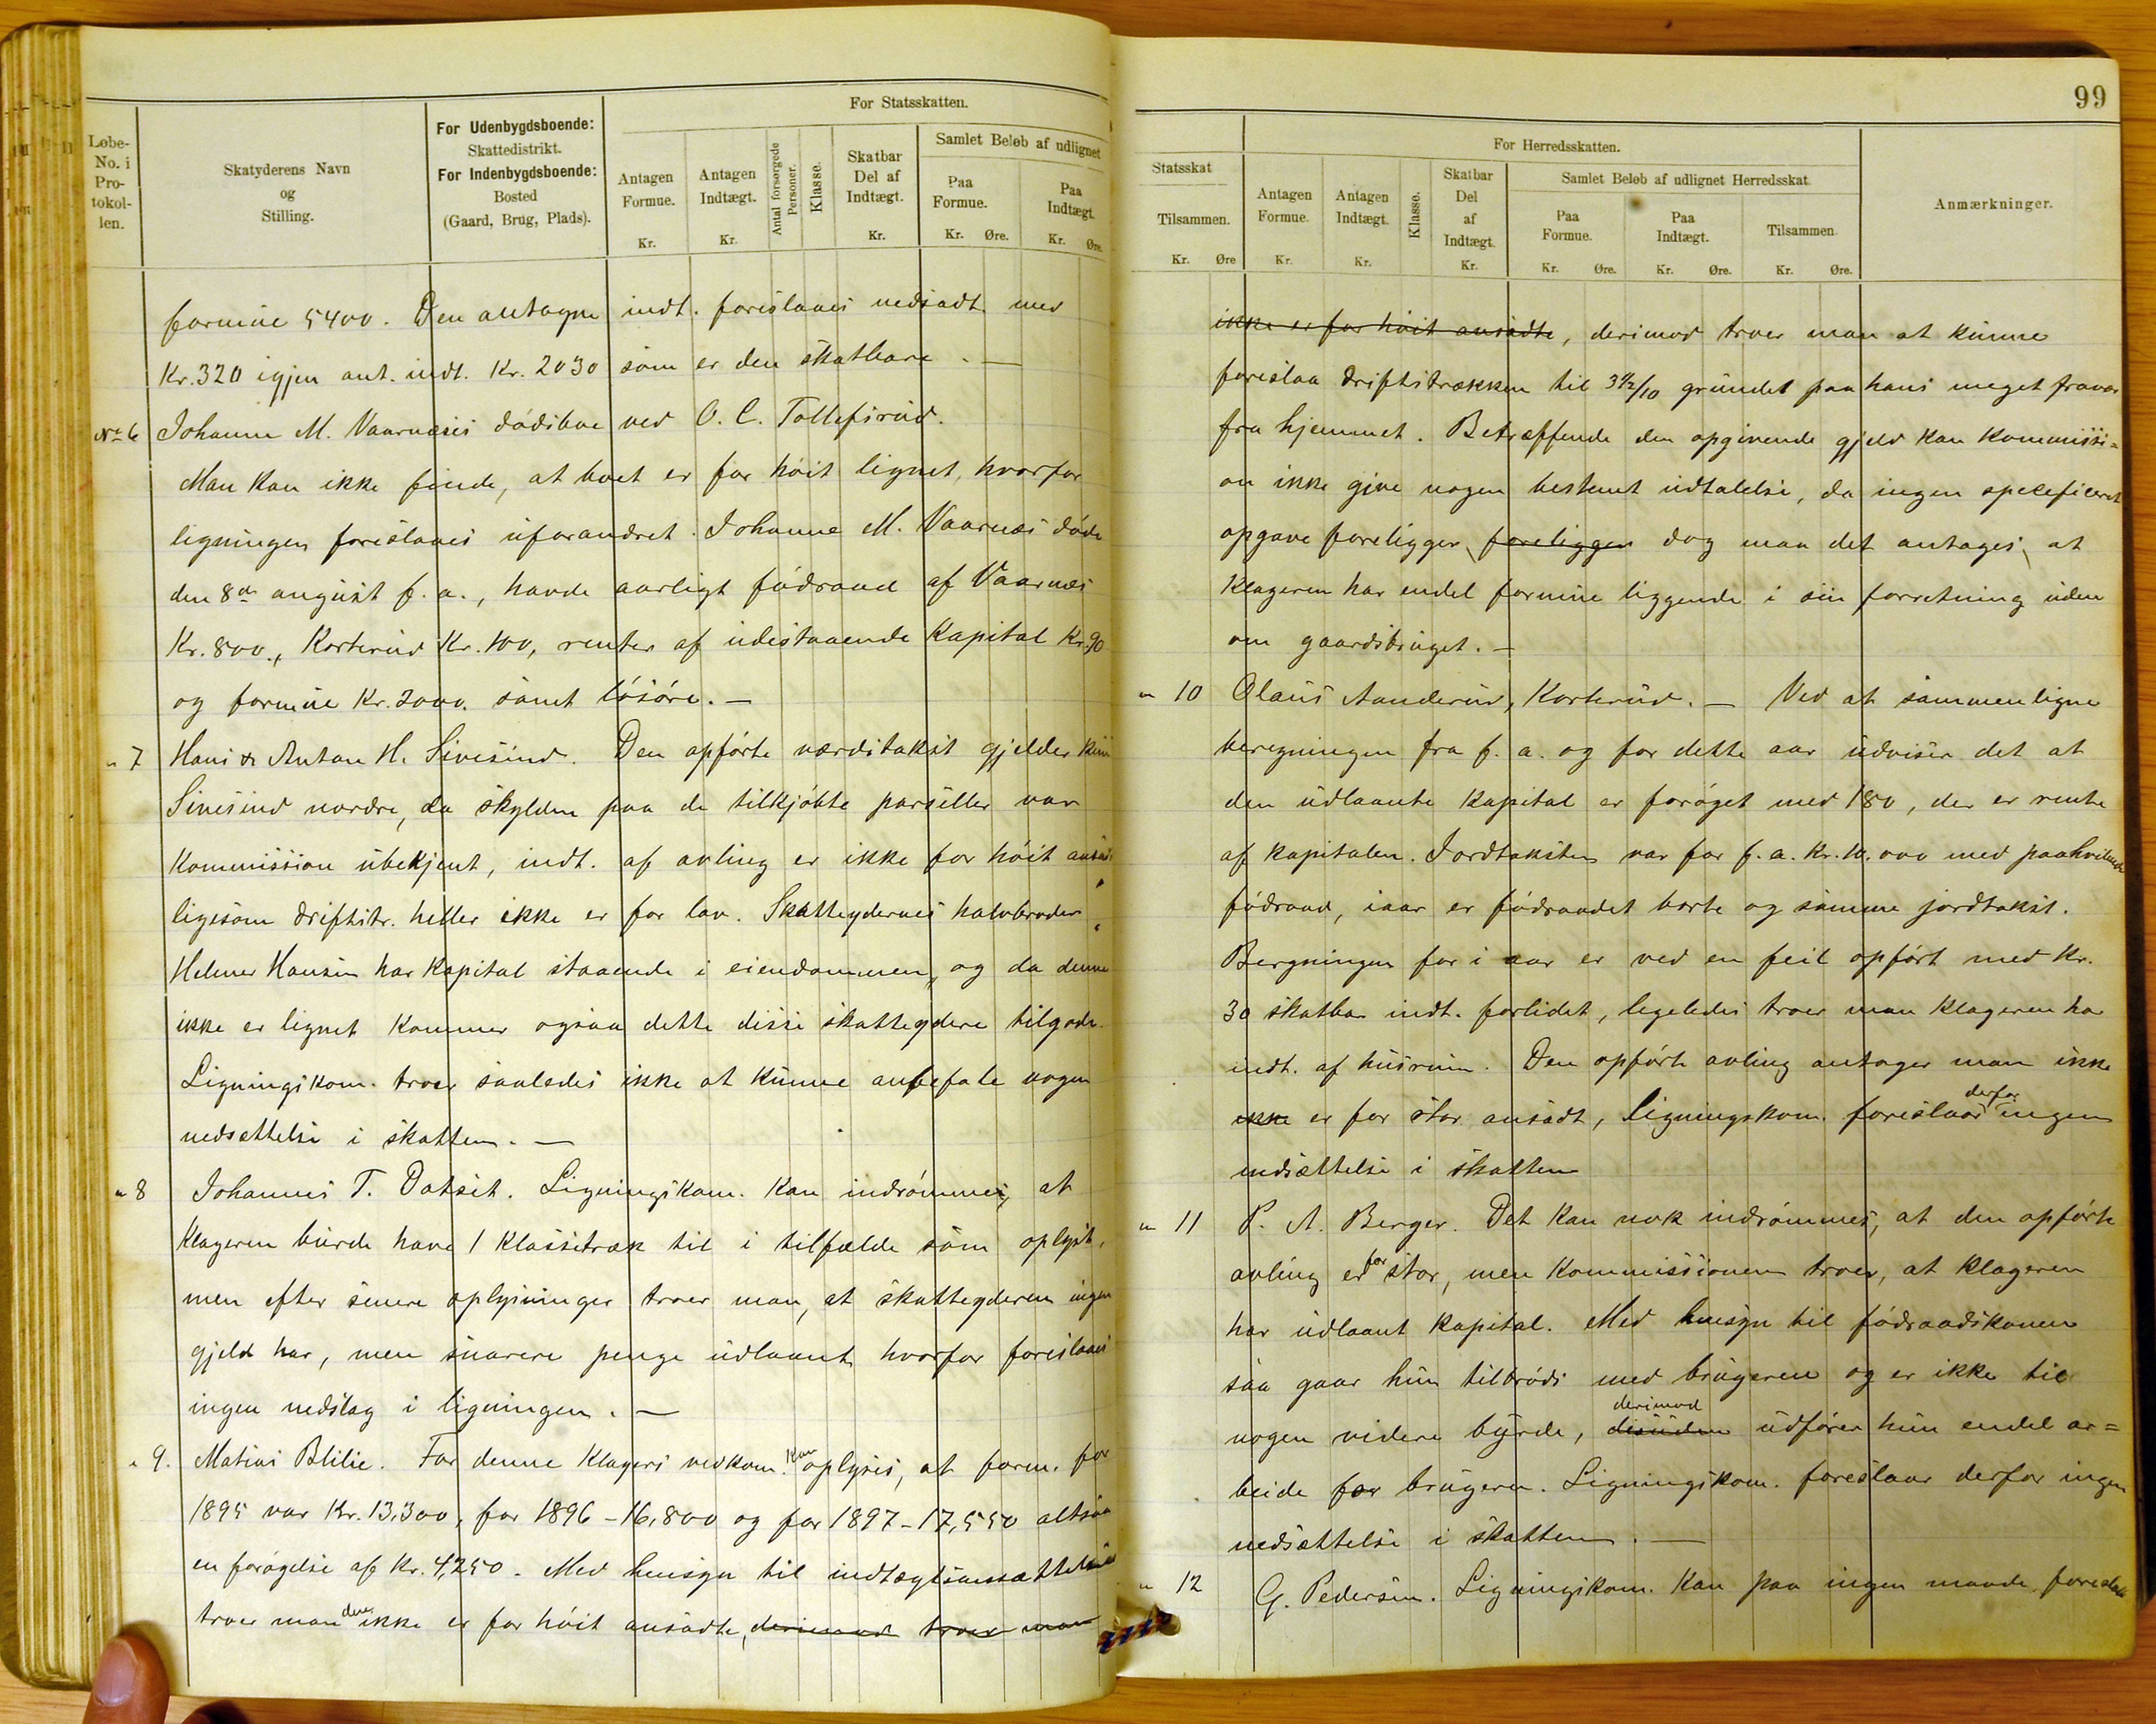 Løbe-No. i Pro-tokol-len.
Skatyderens Navn og Stilling.
For Udenbygdsboende: Skattedistrikt. For Indenbygdsboende: Bosted (Gaard, Brug, Plads).
For Statsskatten.
Antagen Formue. Kr.
Antagen Indtægt. Kr.
Antal forsørgede Personer.
Klasse.
Skatbar Del af Indtægt. Kr.
Samlet Beløb af udlignet
Paa Formue. Kr. Øre.
Paa Indtægt. Kr. Øre.
formue 5400. Den antagne indt. foreslaaes nedsadt med
Kr. 320 igjen ant. indt. Kr. 2030 som er den skatbare. —
No 6 Johanne M. Vaarnæses dødsboe ved O. C. Tollefsrud.
Man kan ikke finde, at boet er for høit lignet, hvorfor
ligningen foreslaaes uforandret. Johanne M. Vaarnæs døde
den 8de august f. a., havde aarligt føderaad af Vaarnæs
Kr. 800., Korterud Kr. 100, renter af udestaaende Kapital Kr. 90
og formue Kr. 2000. samt løsøre. —
" 7 Hans & Anton H. Sivesind. Den opførte værditakst gjelder kun
Sivesind nordre, da skylden paa de tilkjøbte parseller var
Kommission ubekjent, indt. af avling er ikke for høit ansadt
ligesom driftstr. heller ikke er for lav. Skatteydernes halvbroder
Helmer Hansen har Kapital staaende i eiendommen, og da denne
ikke er lignet kommer ogsaa dette disse skatteydere tilgode.
Ligningskom. troer saaledes ikke at kunne anbefale nogen
nedsættelse i skatten. —
" 8 Johannes T. Dotset. Ligningskom. kan indrømme, at
Klageren burde have 1 klassetræk til i tilfælde som oplyst,
men efter senere oplysninger troer man, at skatteyderen ingen
gjeld har, men snarere penge udlaant, hvorfor foreslaaes
ingen nedslag i ligningen. —
" 9. Matias Blilie. For denne Klagers vedkom. kan oplyses, at form. for
1895 var Kr. 13,300, for 1896 - 16,800 og for 1897 - 17,550 altsaa
en forøgelse af Kr. 4,250. Med hensyn til indtægtsansættelsen
troer man den ikke er for høit ansadte, derimod troer man
99
Statsskat Tilsammen. Kr. Øre
For Herredsskatten.
Antagen Formue. Kr.
Antagen Indtægt. Kr.
Klasse.
Skatbar Del af Indtægt. Kr.
Samlet Beløb af udlignet Herredsskat.
Paa Formue. Kr. Øre.
Paa Indtægt. Kr. Øre.
Tilsammen. Kr. Øre.
Anmærkninger.
ikke er for høit ansadte, derimod troer man at kunne
foreslaa driftstrækken til 3½/10 grundet paa hans meget fravær
fra hjemmet. Betræffende den opgivende gjeld kan Kommissi=
on ikke give nogen bestemt udtalelse, da ingen speceficeret
opgave foreligger, foreligger dog maa det antages, at
Klageren har endel formue liggende i sin forretning uden
om gaardsbruget. —
" 10 Olaus Aanderud, Korterud. — Ved at sammenligne
beregningen fra f. a. og for dette aar udviser det at
den udlaante kapital er forøget med 180, der er rente
af kapitalen. Jordtaksten var for f. a. Kr. 10.000 med paahvilende
føderaad, iaar er føderaadet borte og samme jordtakst.
Bergningen for i aar er ved en feil opført med Kr.
30 skatbar indt. forlidet, ligeledes troer man Klageren har
indt. af husrum. Den opførte avling antager man ikke
ikke er for stor ansadt, ligningskom. foreslaar derfor ingen
nedsættelse i skatten
" 11 P. A. Berger. Det kan nok indrømmes, at den opførte
avling er for stor, men Kommissionen troer, at klageren
har udlaant kapital. Med hensyn til føderaadskonen
saa gaar hun tilbrøds med brugeren og er ikke til
nogen videre byrde, desuden derimod udfører hun endel ar=
beide for brugeren. Ligningskom. foreslaar derfor ingen
nedsættelse i skatten. —
" 12 G. Pedersen. Ligningskom. kan paa ingen maade foreslaa